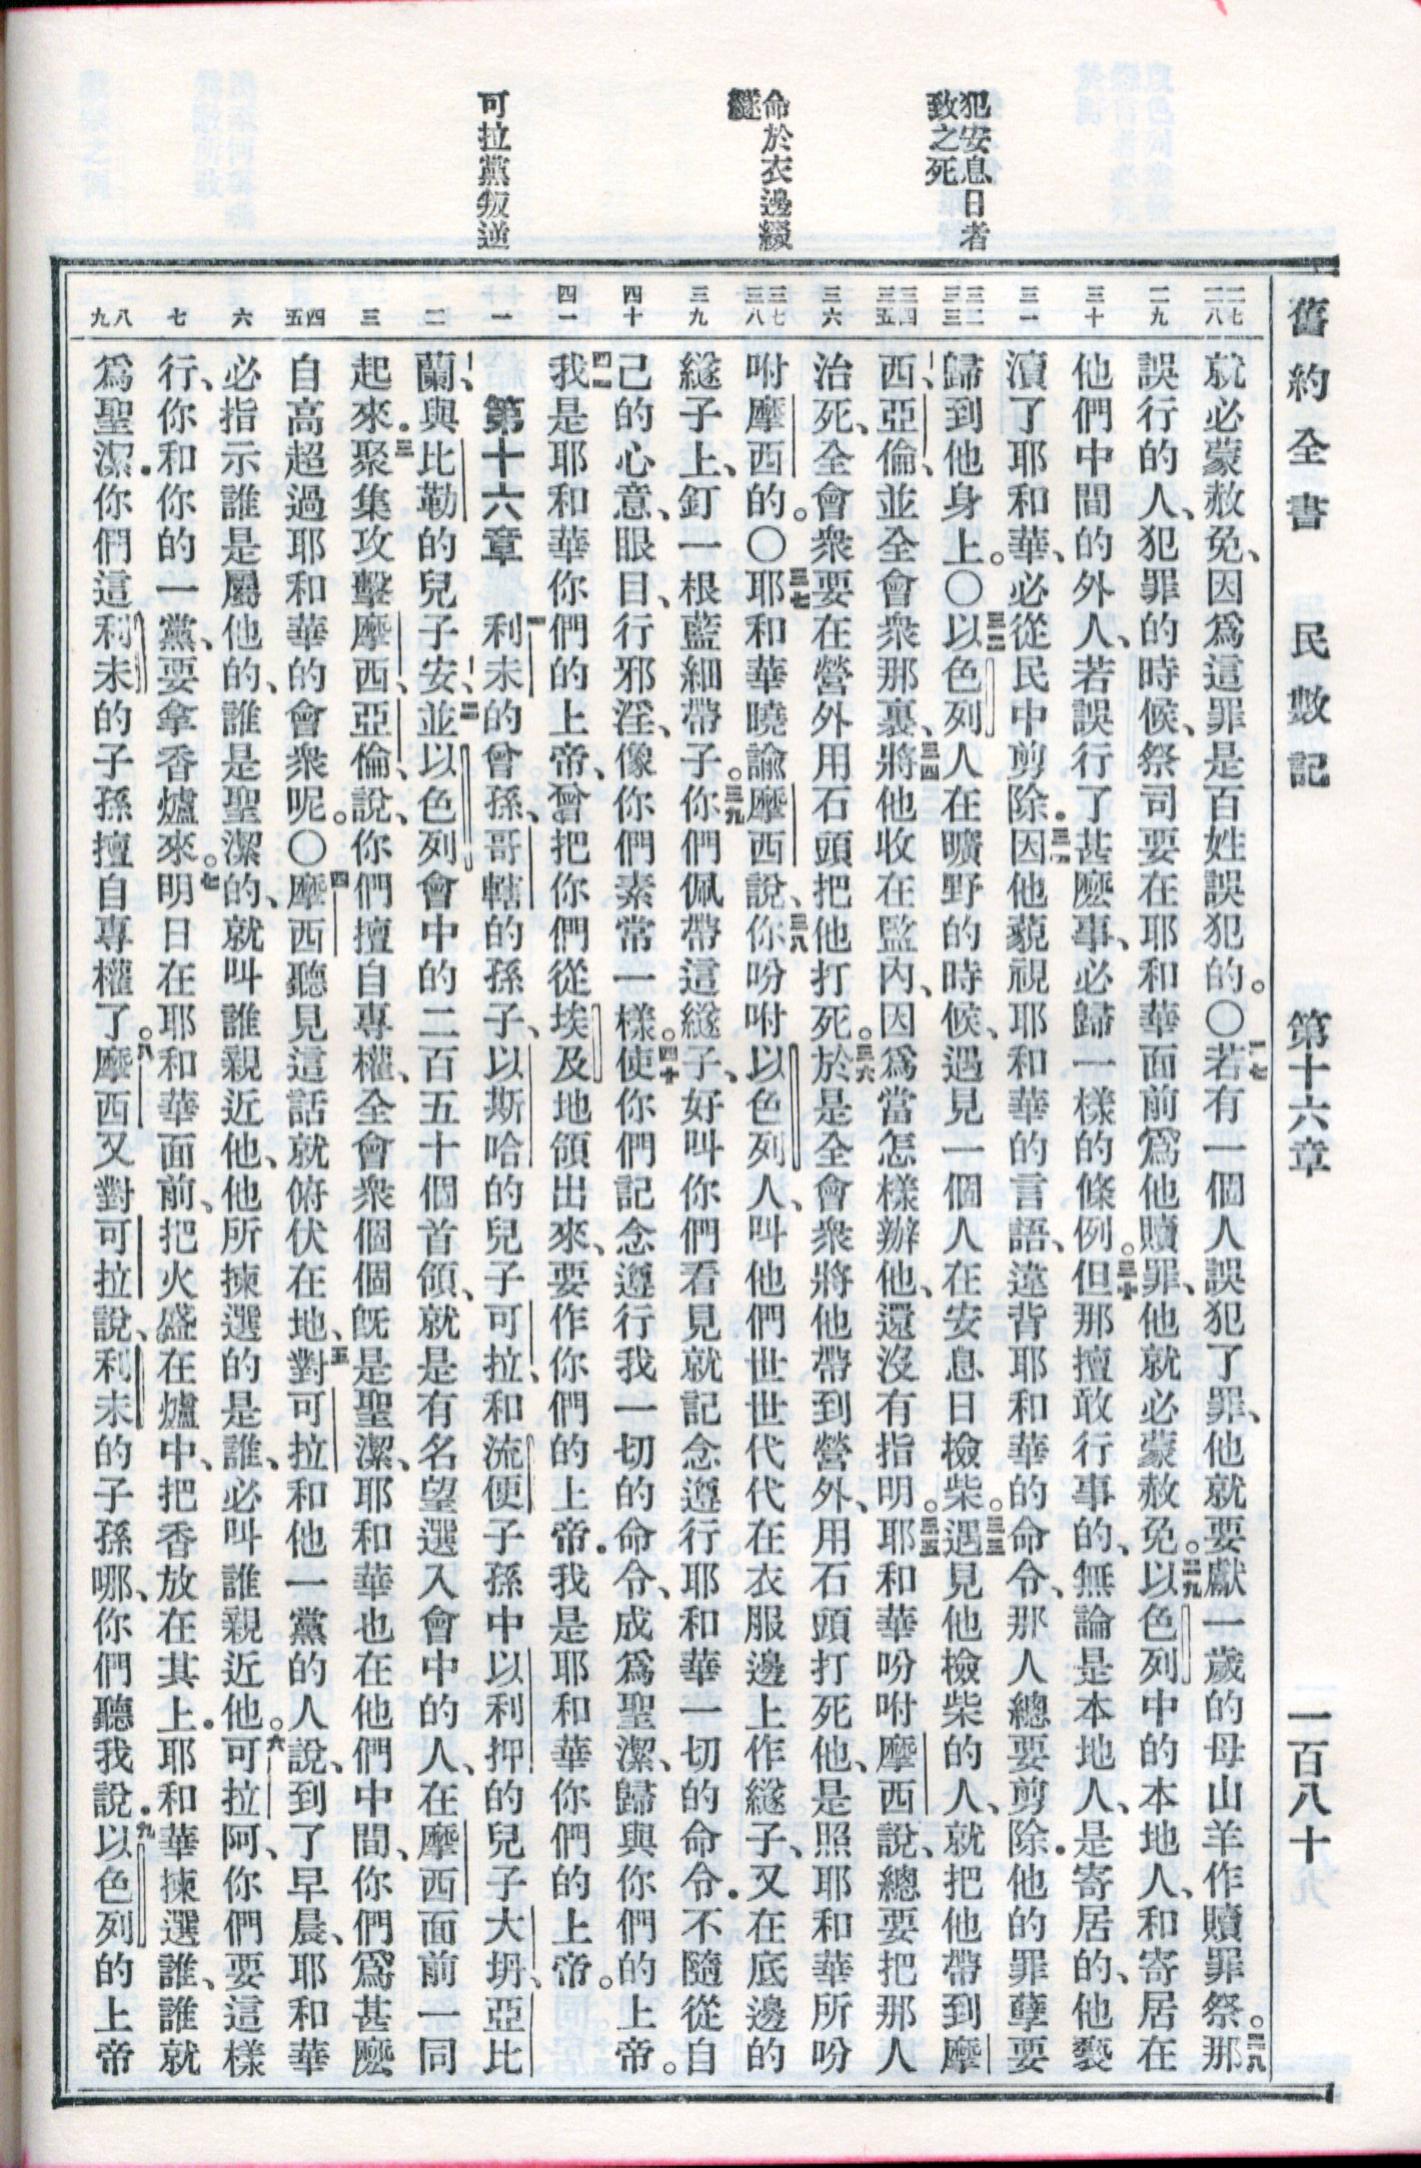 舊約全書　民數記　第十六章　一百八十
犯安息日者
致之死
命於衣邊綴
繸
可拉黨叛逆
二七
二八
二九
三十
三一
三二
三三
三四
三五
三六
三七
三八
三九
四十
四一
一
二
三
四
五
六
七
八
九
就必蒙赦免、因爲這罪是百姓誤犯的。〇二七若有一個人誤犯了罪、他就要獻一歲的母山羊作贖罪祭。二八那
誤行的人、犯罪的時候、祭司要在耶和華面前爲他贖罪、他就必蒙赦免。二九以色列中的本地人、和寄居在
他們中間的外人、若誤行了甚麽事、必歸一樣的條例。三十但那擅敢行事的、無論是本地人、是寄居的、他褻
瀆了耶和華、必從民中剪除．三一因他藐視耶和華的言語、違背耶和華的命令、那人總要剪除．他的罪孽要
歸到他身上。〇三二以色列人在曠野的時候、遇見一個人在安息日檢柴。三三遇見他檢柴的人、就把他帶到摩
西、亞倫、並全會衆那裏、三四將他收在監內、因爲當怎樣辦他、還沒有指明。三五耶和華吩咐摩西說、總要把那人
治死、全會衆要在營外用石頭把他打死。三六於是全會衆將他帶到營外、用石頭打死他、是照耶和華所吩
咐摩西的。〇三七耶和華曉諭摩西說、三八你吩咐以色列人、叫他們世世代代在衣服邊上作繸子、又在底邊的
繸子上、釘一根藍細帶子。三九你們佩帶這繸子、好叫你們看見就記念遵行耶和華一切的命令．不隨從自
己的心意、眼目、行邪淫、像你們素常一樣。四十使你們記念遵行我一切的命令、成爲聖潔、歸與你們的上帝。
四一我是耶和華你們的上帝、曾把你們從埃及地領出來、要作你們的上帝．我是耶和華你們的上帝。
第十六章　一利未的曾孫、哥轄的孫子、以斯哈的兒子可拉、和流便子孫中以利押的兒子大坍、亞比
蘭、與比勒的兒子安、二並以色列會中的二百五十個首領、就是有名望選入會中的人、在摩西面前一同
起來．三聚集攻擊摩西、亞倫、說、你們擅自專權、全會衆個個旣是聖潔、耶和華也在他們中間、你們爲甚麽
自高超過耶和華的會衆呢。〇四摩西聽見這話就俯伏在地、五對可拉和他一黨的人說、到了早晨、耶和華
必指示誰是屬他的、誰是聖潔的、就叫誰親近他、他所揀選的是誰、必叫誰親近他。六可拉阿、你們要這樣
行、你和你的一黨、要拿香爐來。七明日在耶和華面前、把火盛在爐中、把香放在其上．耶和華揀選誰、誰就
爲聖潔．你們這利未的子孫擅自專權了。八摩西又對可拉說、利未的子孫哪、你們聽我說．九以色列的上帝